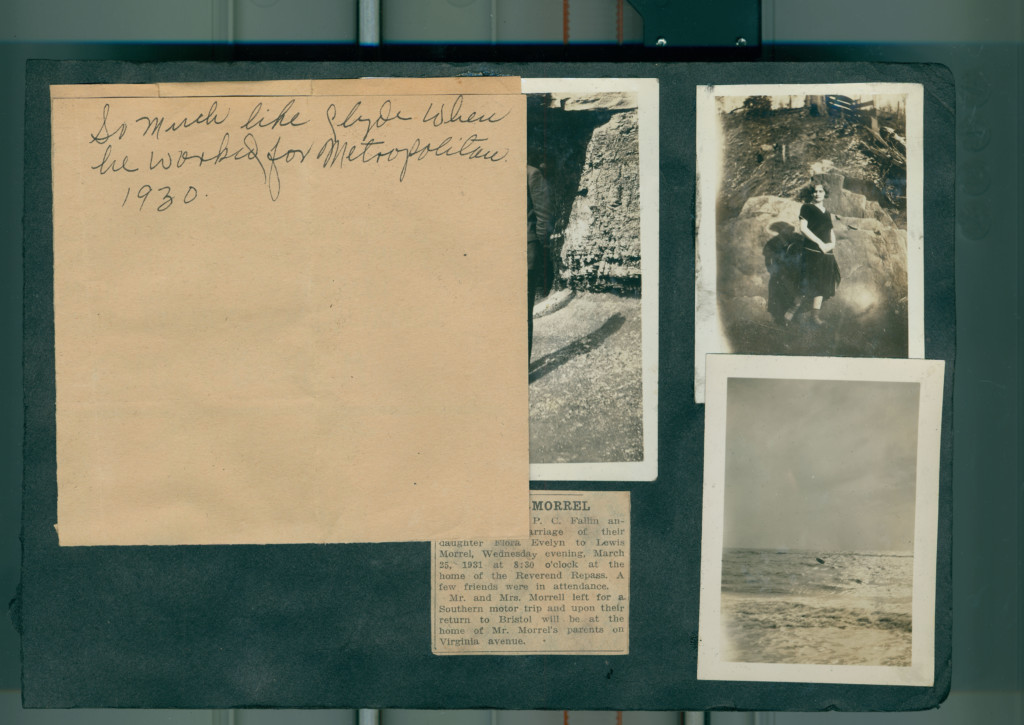 So much like Clyde when
he worked for Metropolitan.
1930.
-MORREL
P. C. Fallin an-
arriage of their
daughter Elora Evelyn to Lewis
Morrel, Wednesday evening, March
25, 1931 at 8:30 o'clock at the
home of the Reverend Repass. A
few friends were in attendance.
Mr. and Mrs. Morrell left for a
Southern motor trip and upon their
return to Bristol will be at the
home of Mr. Morrel's parents on
Virginia avenue.